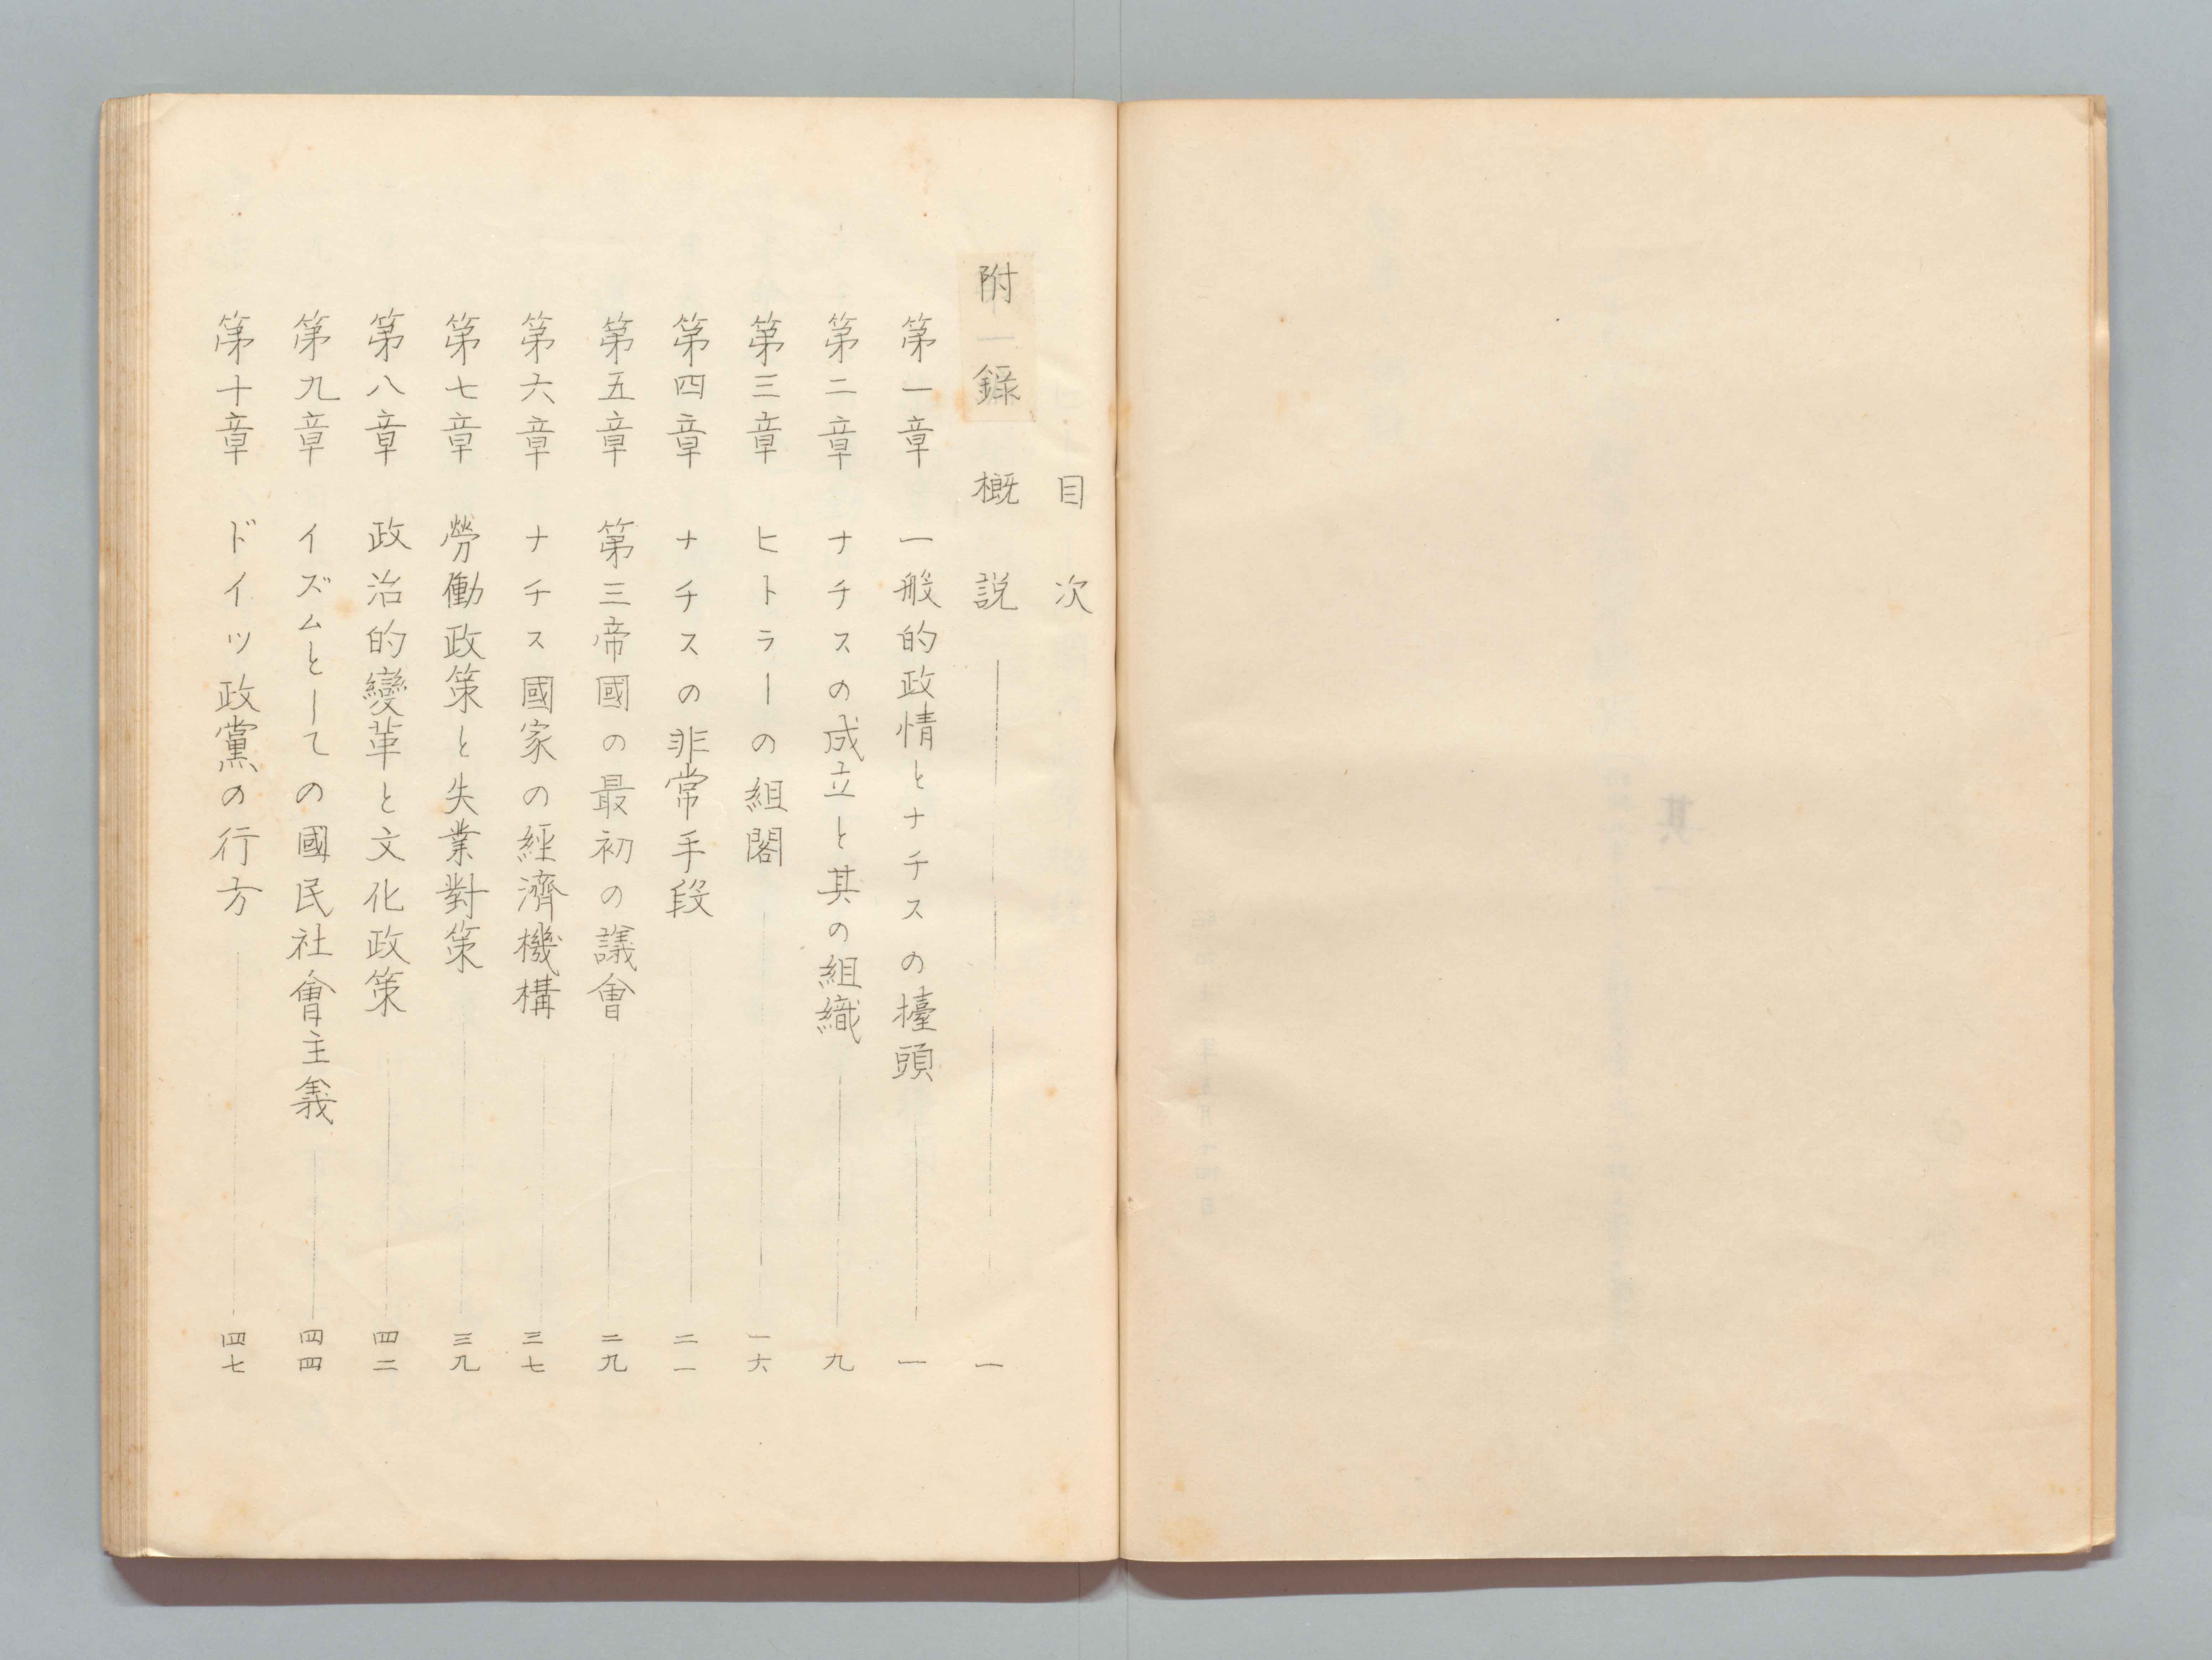 目次
附一録 概説 一
第一章 一般的政情とナチスの擡頭 一
第二章 ナチスの成立と其の組織 九
第三章 ヒトラーの組閣 一六
第四章 ナチスの非常手段 二一
第五章 第三帝國の最初の議會 二九
第六章 ナチス國家の経濟機構 三七
第七章 勞働政策と失業對策 三九
第八章 政治的變革と文化政策 四二
第九章 イズムとしての國民社會主義 四四
第十章 ドイツ政黨の行方 四七